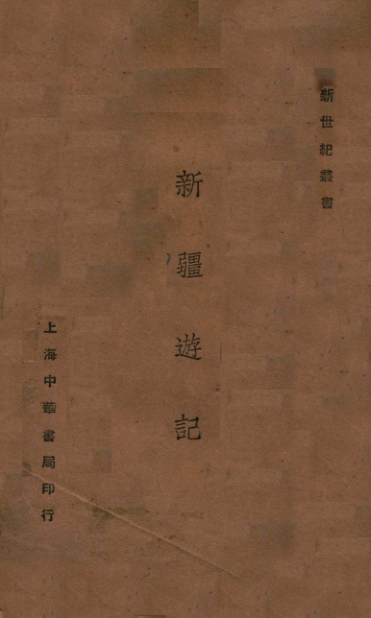 新世紀叢書
新疆遊記
上海中華書局印行